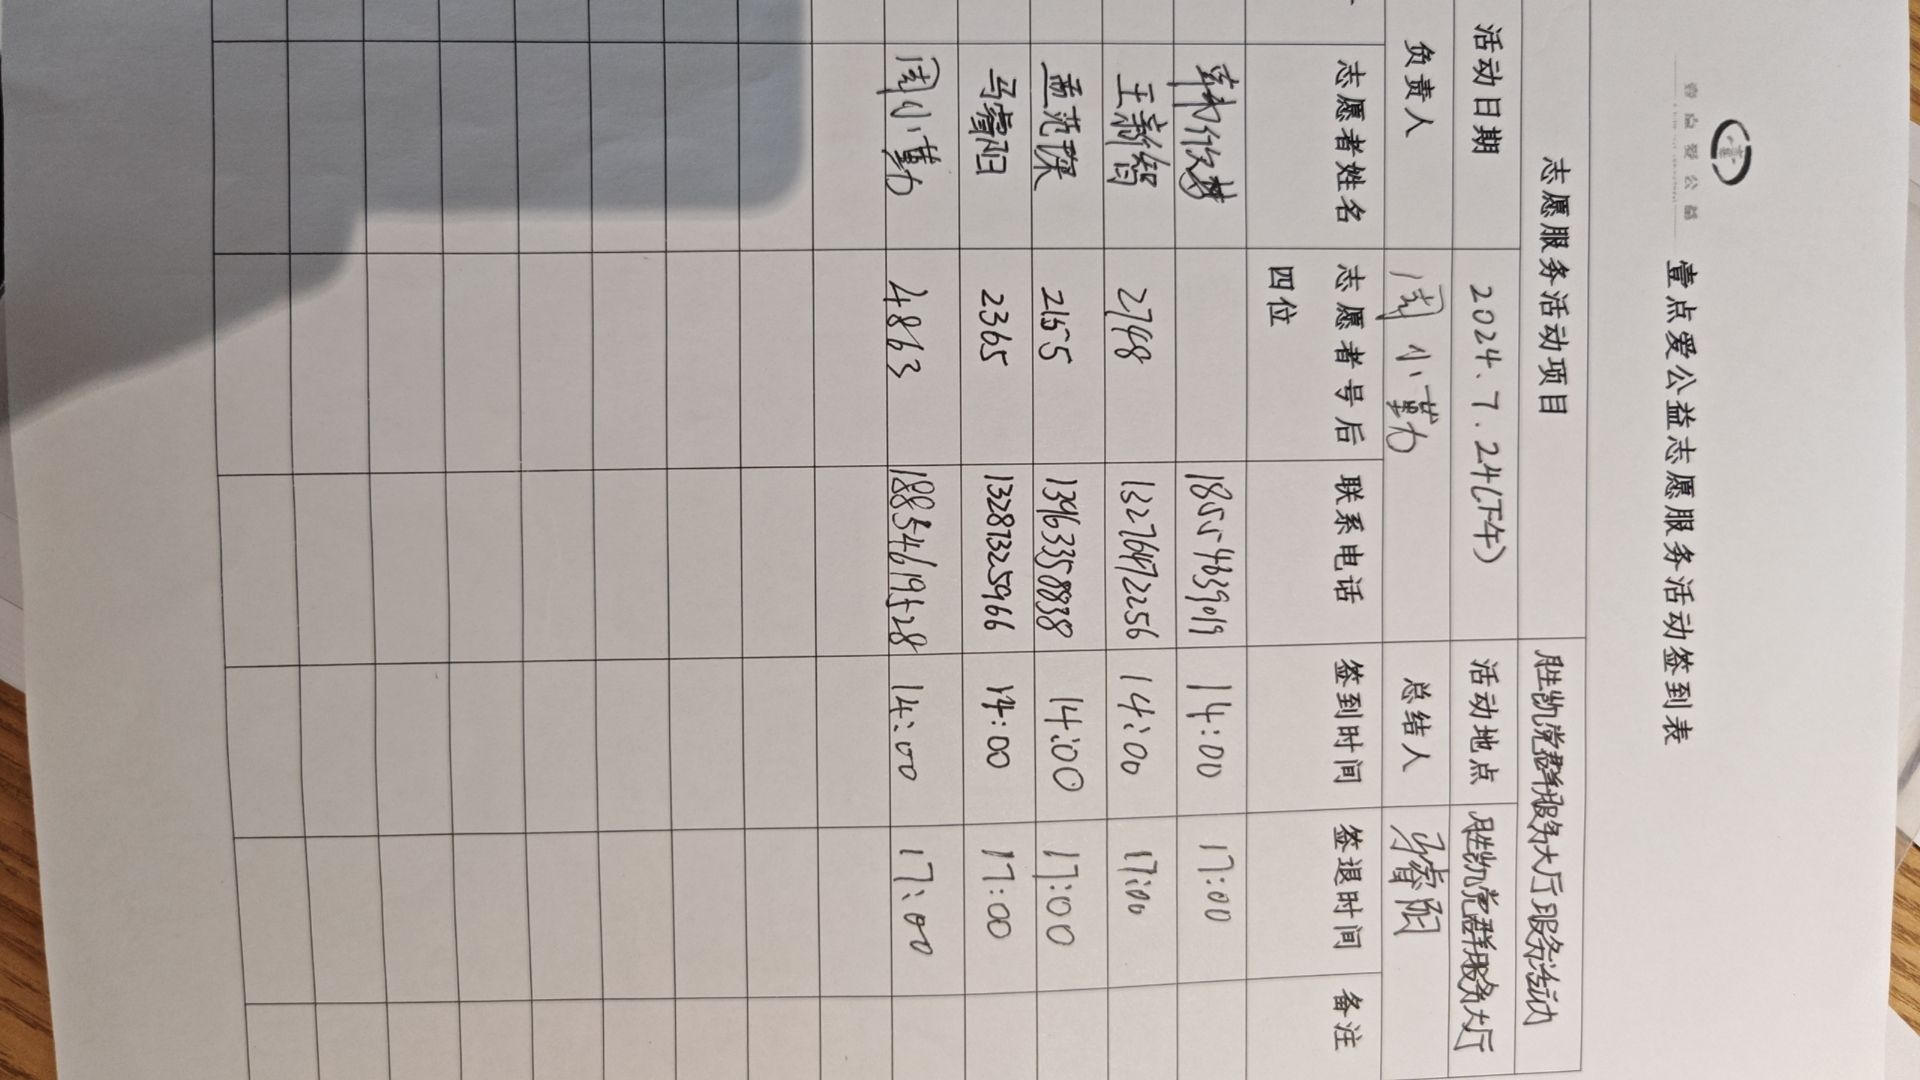 壹点爱公益
壹点爱公益志愿服务活动签到表
志愿服务活动项目 胜凯党群服务大厅服务活动
活动日期 2024.7.24(下午) 活动地点 胜凯党群服务大厅
负责人 周小勤 总结人 马睿阳
志愿者姓名 志愿者号后四位 联系电话 签到时间 签退时间 备注
韩欣梦 18554839019 14:00 17:00
王新智 2748 13276472256 14:00 17:00
孟范琛 2155 13963358838 14:00 17:00
马睿阳 2365 13287325966 14:00 17:00
周小勤 4863 18854619528 14:00 17:00